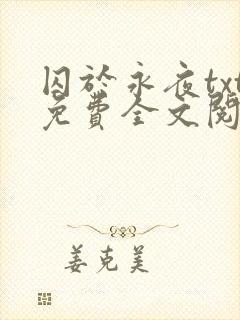 囚於永夜txt
免費全文閱
姜克美